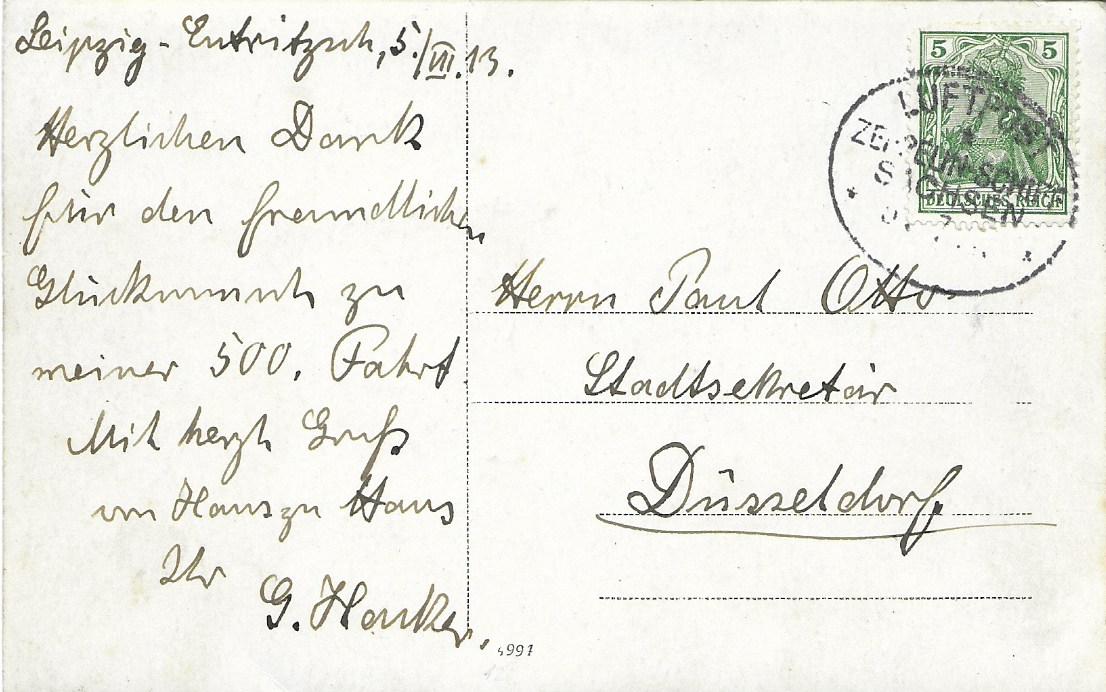 Leipzig-Eutritzsch, 5./VII.13.
Herzlichen Dank
für den freundlichen
Glückwunsch zu
meiner 500. Fahrt.
Mit herzl Gruß
von Haus zu Haus
Ihr
G. Hacker.
5 5
DEUTSCHES REICH
LUFTPOST
ZEPPELIN-SCHIFF
SACHSEN
Herrn Paul Otto
Stadtsekretär
Düsseldorf.
4991